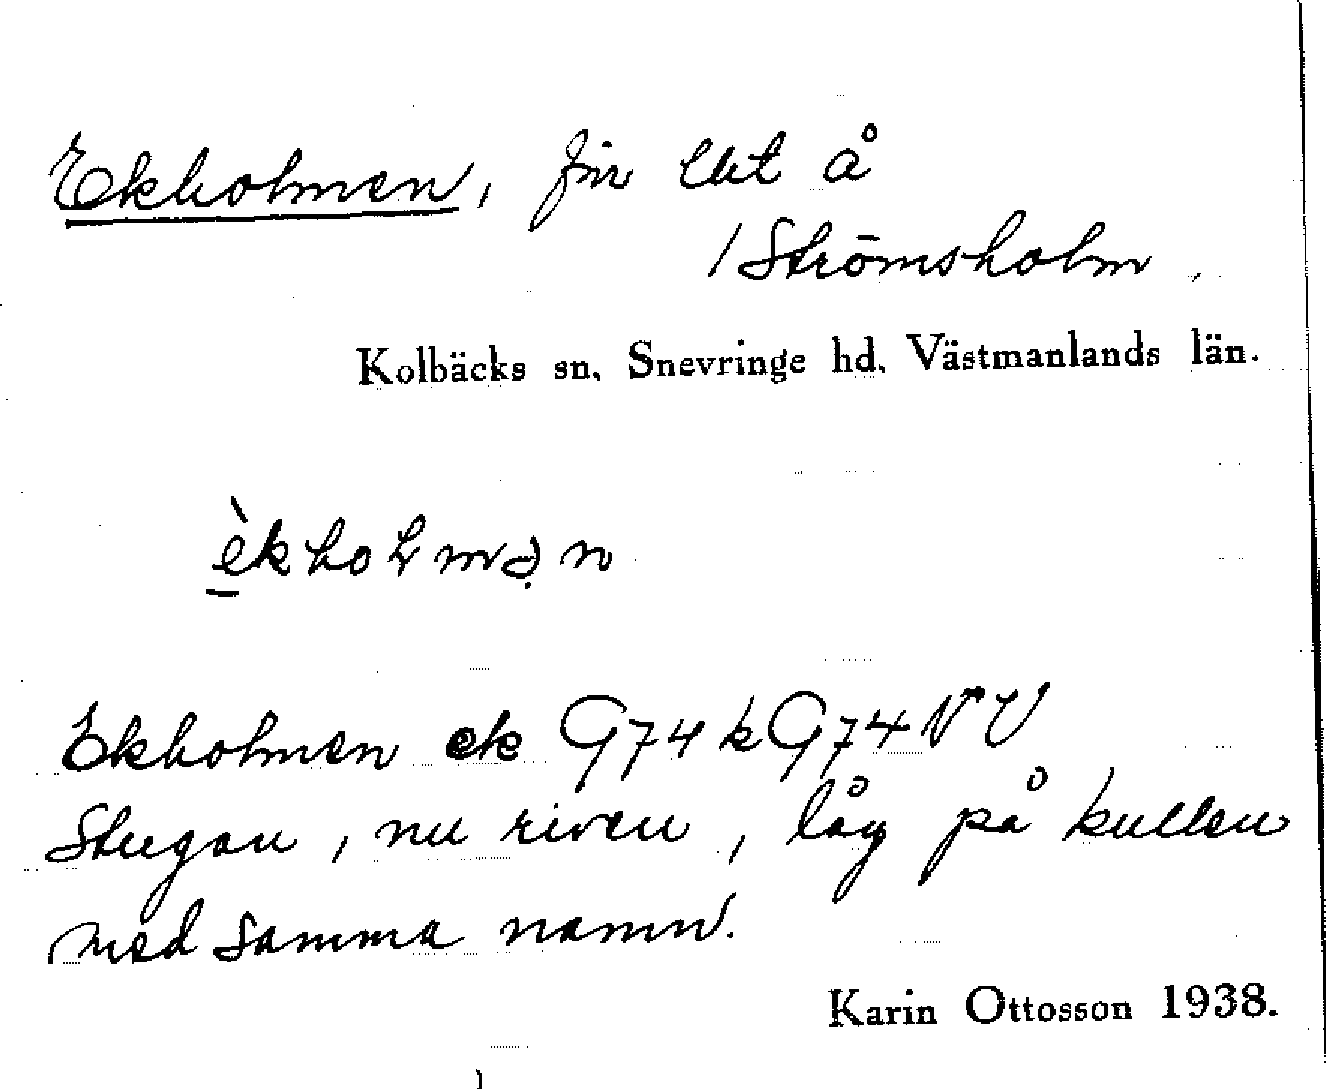 Ekholmen, för lht å
/Strömsholm.
Kolbäcks sn, Snevringe hd, Västmanlands län.
èkholmən
Ekholmen ek G74kG74NV
Stugan, nu riven, låg på kullen
med samma namn.
Karin Ottosson 1938.